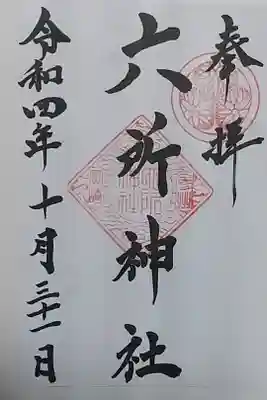 奉拝
六所神社
令和四年十月三十一日